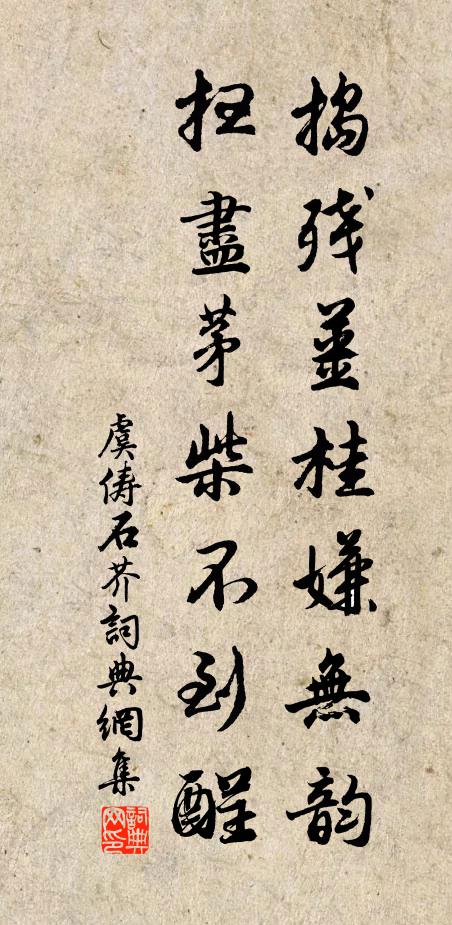 搗残薑桂嫌無韵
扭盡茅柴不到酲
虞俦石芥詞典網集
詞典网印